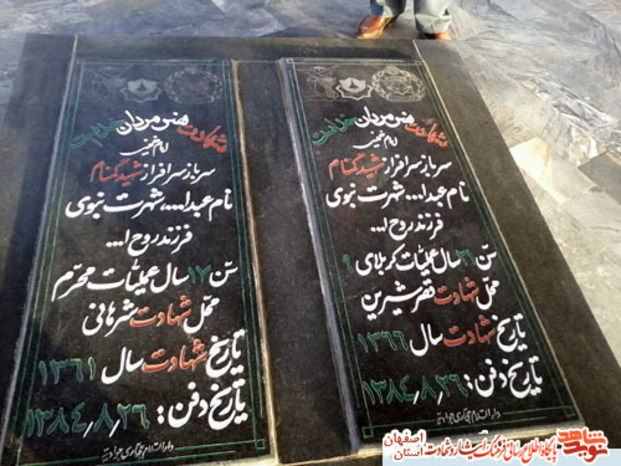 شهادت هنر مردان خداست
امام خمینی
سرباز سرافراز شهید گمنام
نام عبدا... شهرت نبوی
فرزند روح ا...
سن ۲۱ سال عملیات کربلای ۹
محل شهادت قصر شیرین
تاریخ شهادت سال ۱۳۶۶
تاریخ دفن: ۱۳۸۴٫۸٫۲۶
دارالسلام حجاری جوادیه
شهادت هنر مردان خداست
امام خمینی
سرباز سرافراز شهید گمنام
نام عبدا...، شهرت نبوی
فرزند روح ا...
سن ۱۷ سال عملیات محرم
محل شهادت شرهانی
تاریخ شهادت سال ۱۳۶۱
تاریخ دفن: ۱۳۸۴٫۸٫۲۶
دارالسلام حجاری جوادیه
نوید شاهد
پایگاه اطلاع رسانی فرهنگ ایثار و شهادت استان اصفهان